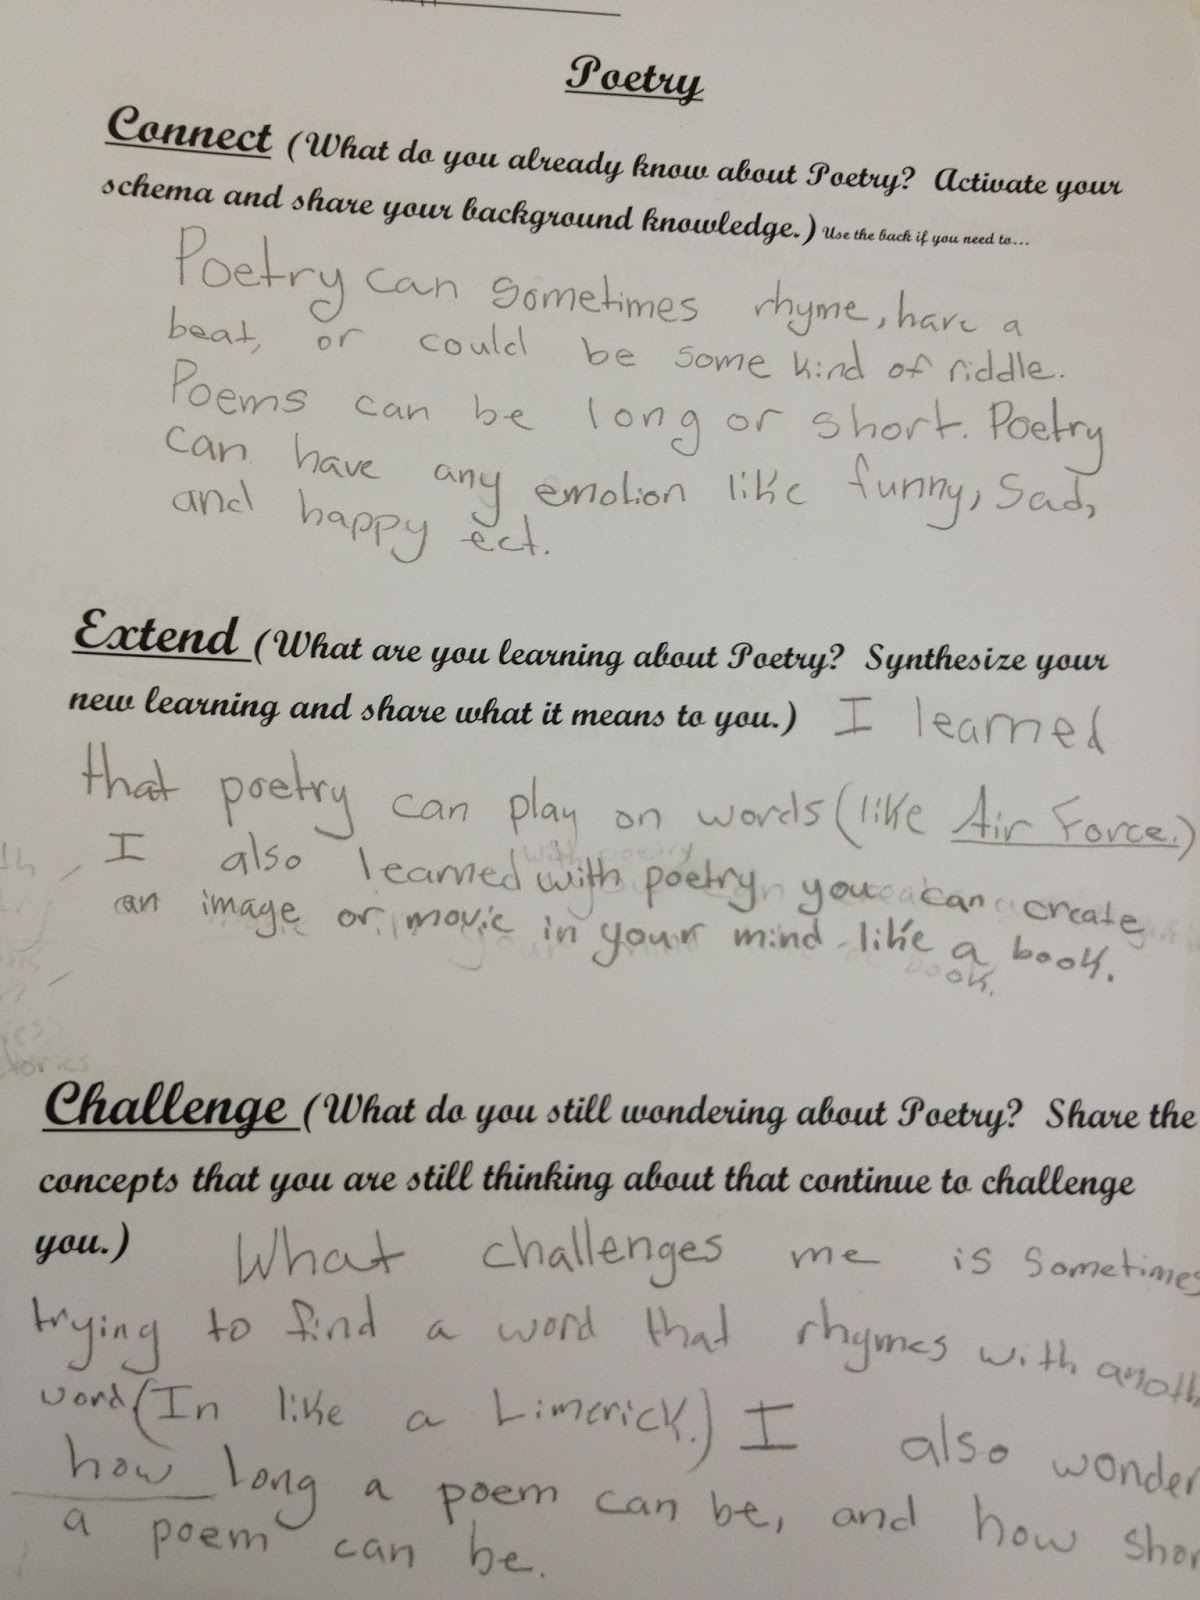 Poetry
Connect (What do you already know about Poetry? Activate your
schema and share your background knowledge.) Use the back if you need to...
Poetry can sometimes rhyme, have a
beat, or could be some kind of riddle.
Poems can be long or short. Poetry
can have any emotion like funny, Sad,
and happy ect.
Extend (What are you learning about Poetry? Synthesize your
new learning and share what it means to you.) I learned
that poetry can play on words (like Air Force.)
I also learned with poetry you can create
an image or movie in your mind like a book.
book.
Challenge (What do you still wondering about Poetry? Share the
concepts that you are still thinking about that continue to challenge
you.) What challenges me is Sometimes
trying to find a word that rhymes with anoth
word (In like a Limerick.) I also wonder
how long a poem can be, and how shor
a poem can be.